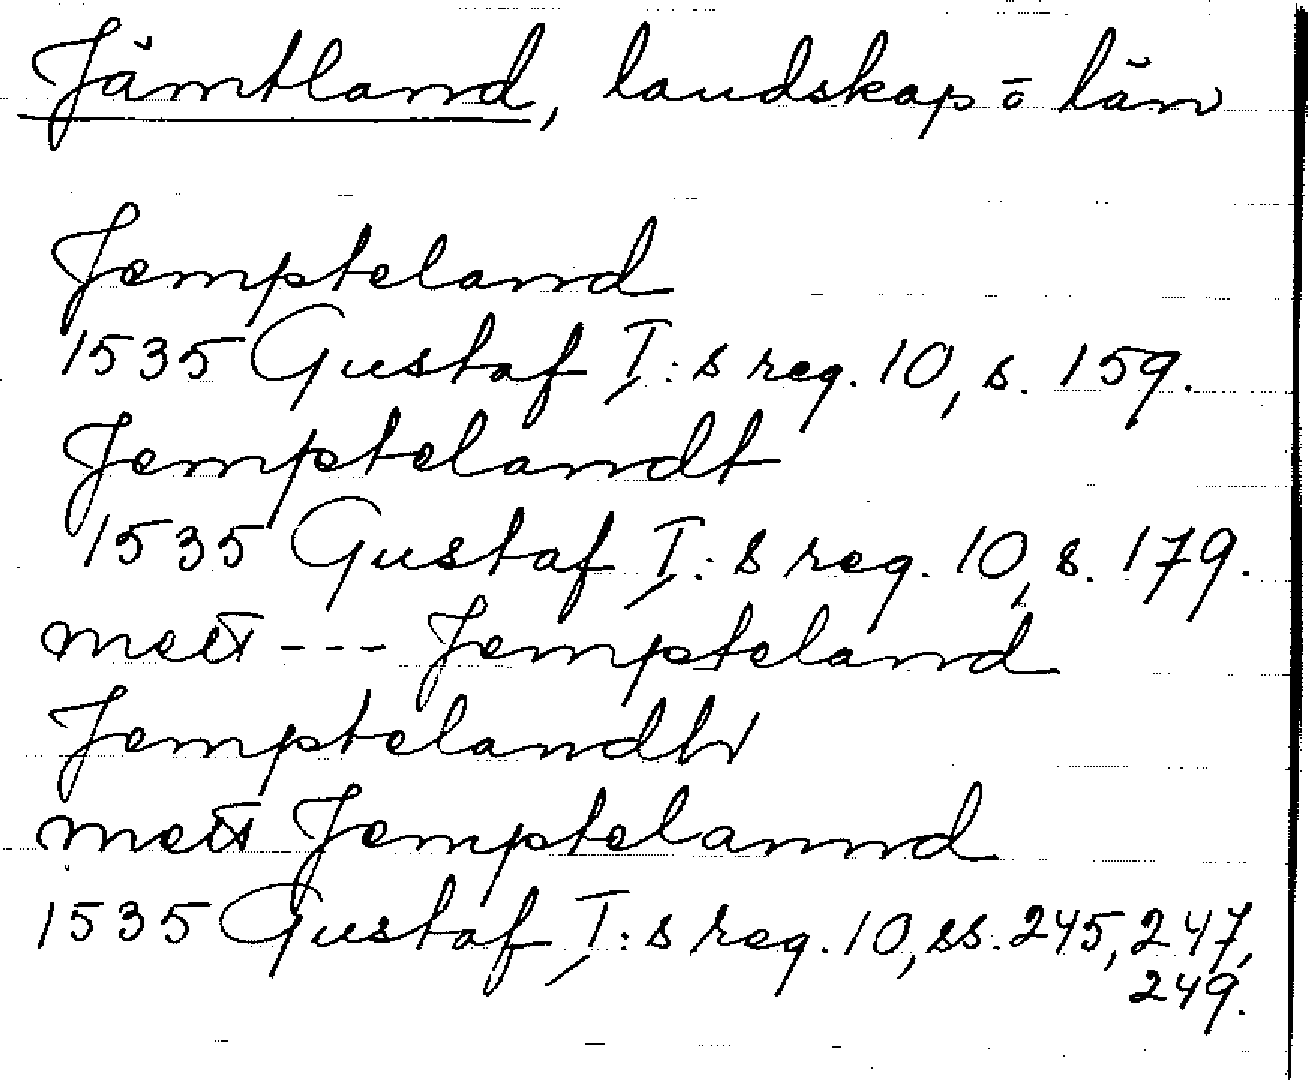 Jämtland, landskap o län
Jempteland
1535 Gustaf I:s reg. 10, s. 159.
Jemptelandt
1535 Gustaf I:s reg. 10, s. 179.
mett --- Jempteland
Jemptelandh
mett Jemptelannd
1535 Gustaf I:s reg. 10, ss. 245, 247,
249.